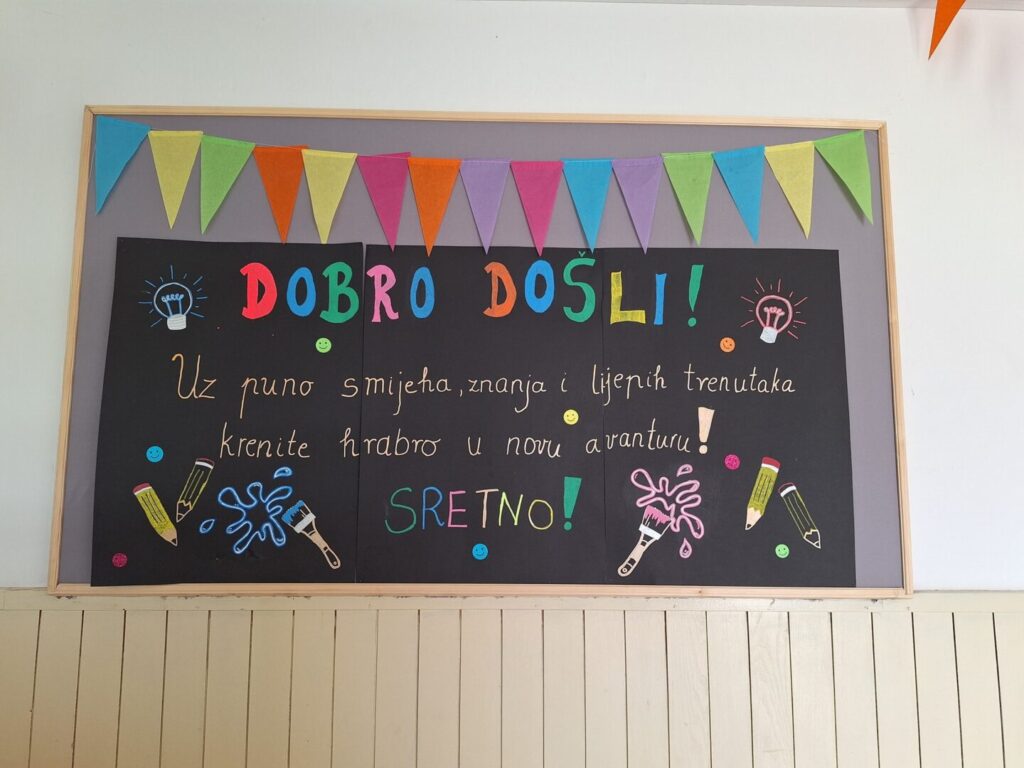 DOBRO DOŠLI!
Uz puno smijeha, znanja i lijepih trenutaka
krenite hrabro u novu avanturu!
SRETNO!